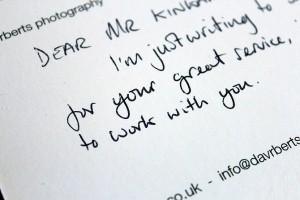 davrberts photography
DEAR MR
I'm just writing to
for your great service,
to work with you.
.co.uk - info@davrberts